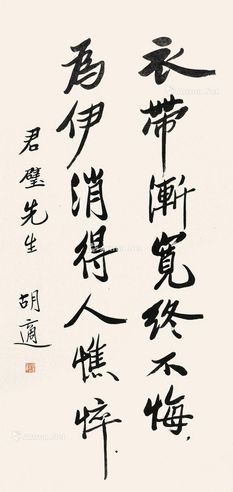 衣帶漸寬終不悔．
為伊消得人憔悴．
君璧先生
胡適